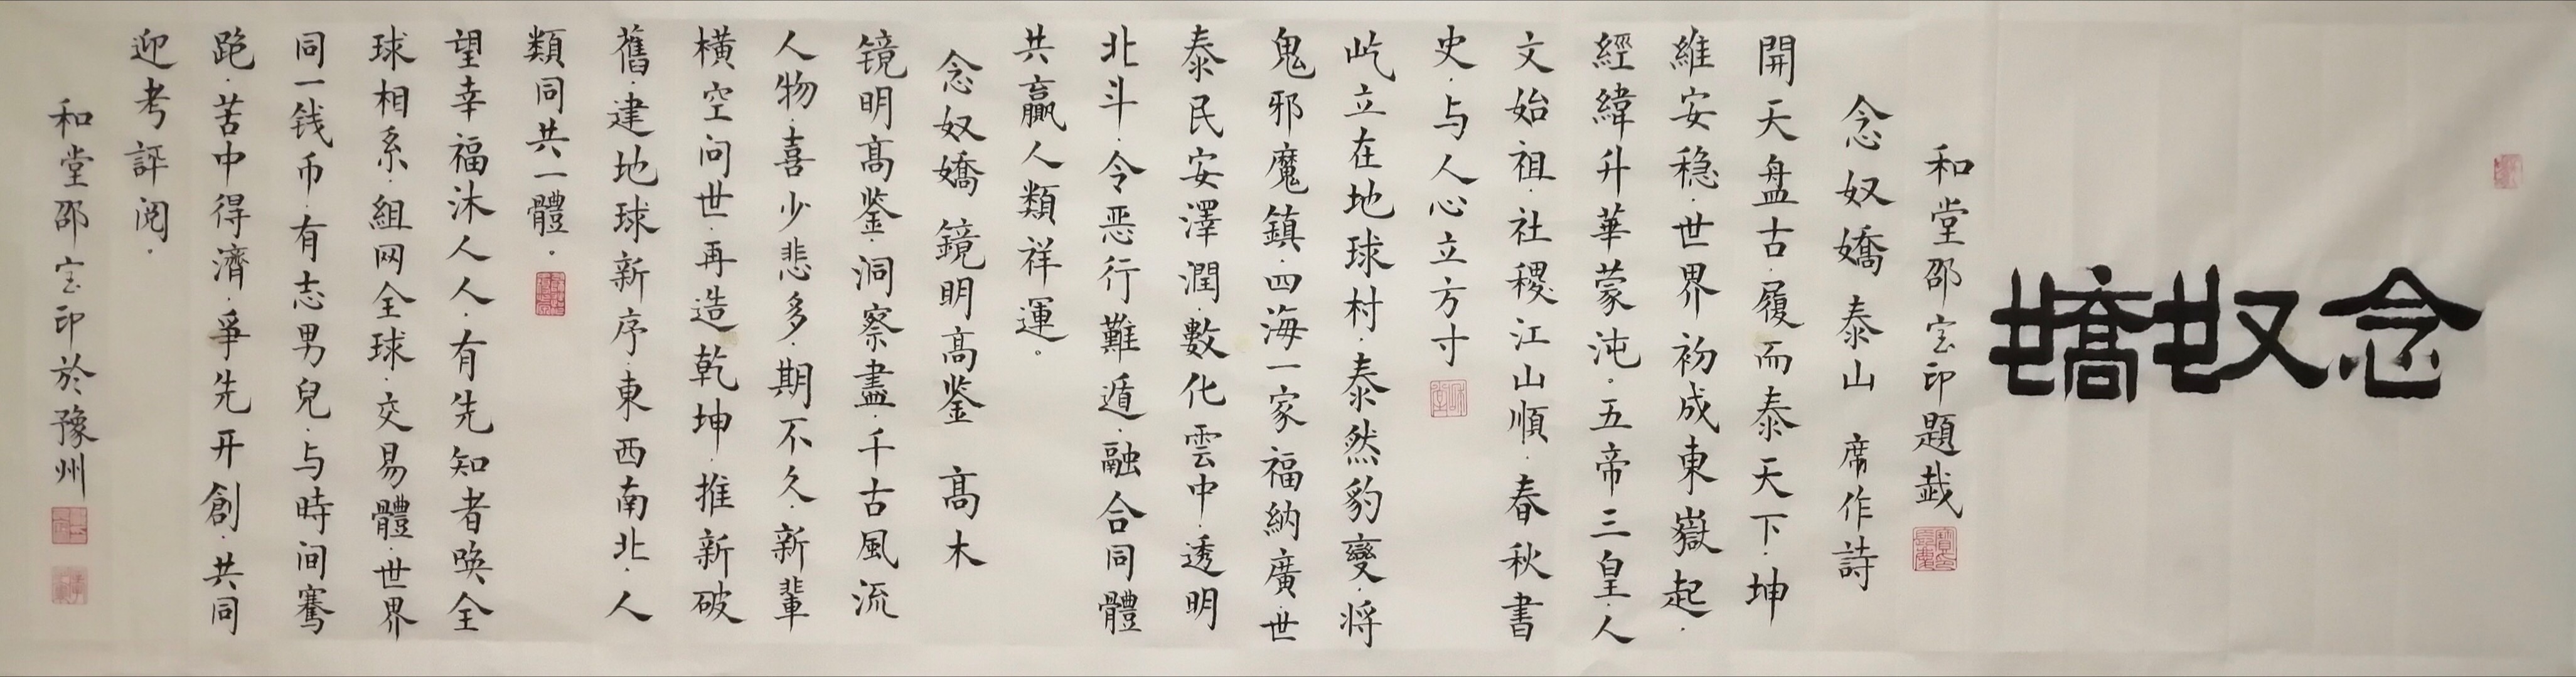 念奴嬌
和堂邵宝印題戴
念奴嬌 泰山 席作詩
開天盘古·履而泰天下·坤
維安稳·世界初成東嶽起·
經緯升華蒙沌·五帝三皇·人
文始祖·社稷江山順·春秋書
史·与人心立方寸
屹立在地球村·泰然豹變·将
鬼邪魔鎮·四海一家福納廣·世
泰民安澤潤·數化雲中·透明
北斗·令恶行難遁·融合同體
共贏人類祥運。
念奴嬌 鏡明高鉴 高木
镜明高鉴·洞察盡·千古風流
人物·喜少悲多·期不久·新輩
橫空问世·再造乾坤·推新破
舊·建地球新序·東西南北·人
類同共一體·
望幸福沐人人·有先知者唤全
球相系·組网全球·交易體·世界
同一钱币·有志男兒·与時间騫
跑·苦中得濟·爭先开創·共同
迎考評阅·
和堂邵宝印於豫州